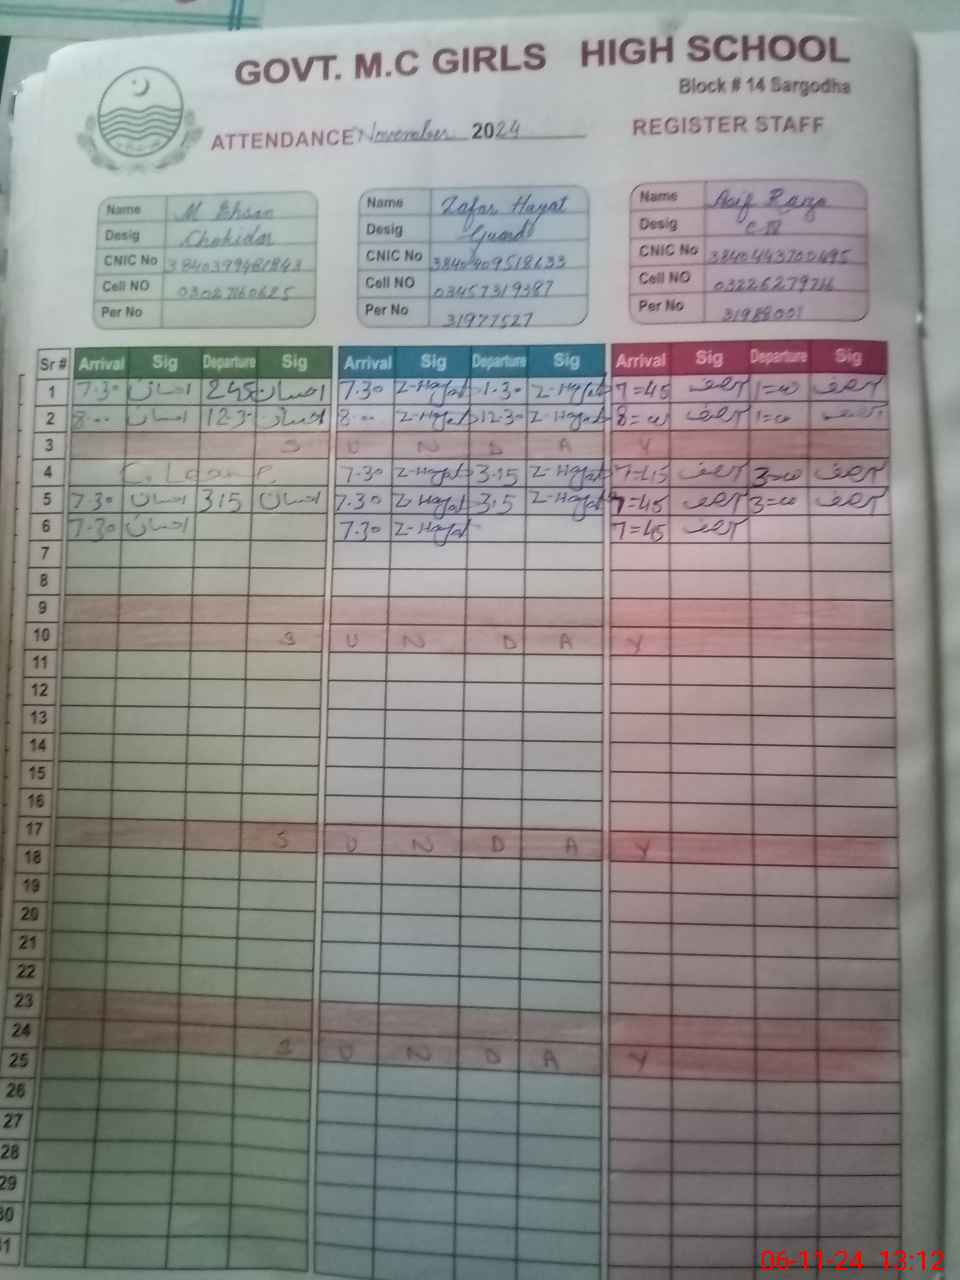 GOVT. M.C GIRLS HIGH SCHOOL
Block # 14 Sargodha
ATTENDANCE November 2024 REGISTER STAFF
Name M Ehsan Name Zafar Hayat Name Asif Raza
Desig Chokidar Desig Guard Desig
CNIC No CNIC No CNIC No
Cell NO Cell NO 03457319387 Cell NO
Per No Per No 31977527 Per No
Sr # Arrival Sig Departure Sig Arrival Sig Departure Sig Arrival Sig Departure Sig
1 7.30 احسان 2.45 احسان 7.30 Z-Hayat 1.30 Z-Hayat 7=45 آصف 1=00 آصف
2 8.00 احسان 12.30 احسان 8.00 Z-Hayat 12.30 Z-Hayat 8=00 آصف 1=00
3 S U N D A Y
4 C. Leave 7.30 Z-Hayat 3.15 Z-Hayat 7=45 آصف 3=00 آصف
5 7.30 احسان 3.15 احسان 7.30 Z-Hayat 3.15 Z-Hayat 7=45 آصف 3=00 آصف
6 7.30 احسان 7.30 Z-Hayat 7=45 آصف
7
8
9
10 S U N D A Y
11
12
13
14
15
16
17 S U N D A Y
18
19
20
21
22
23
24
S U N D A Y
25
26
27
28
29
30
31
06-11-24 13:12